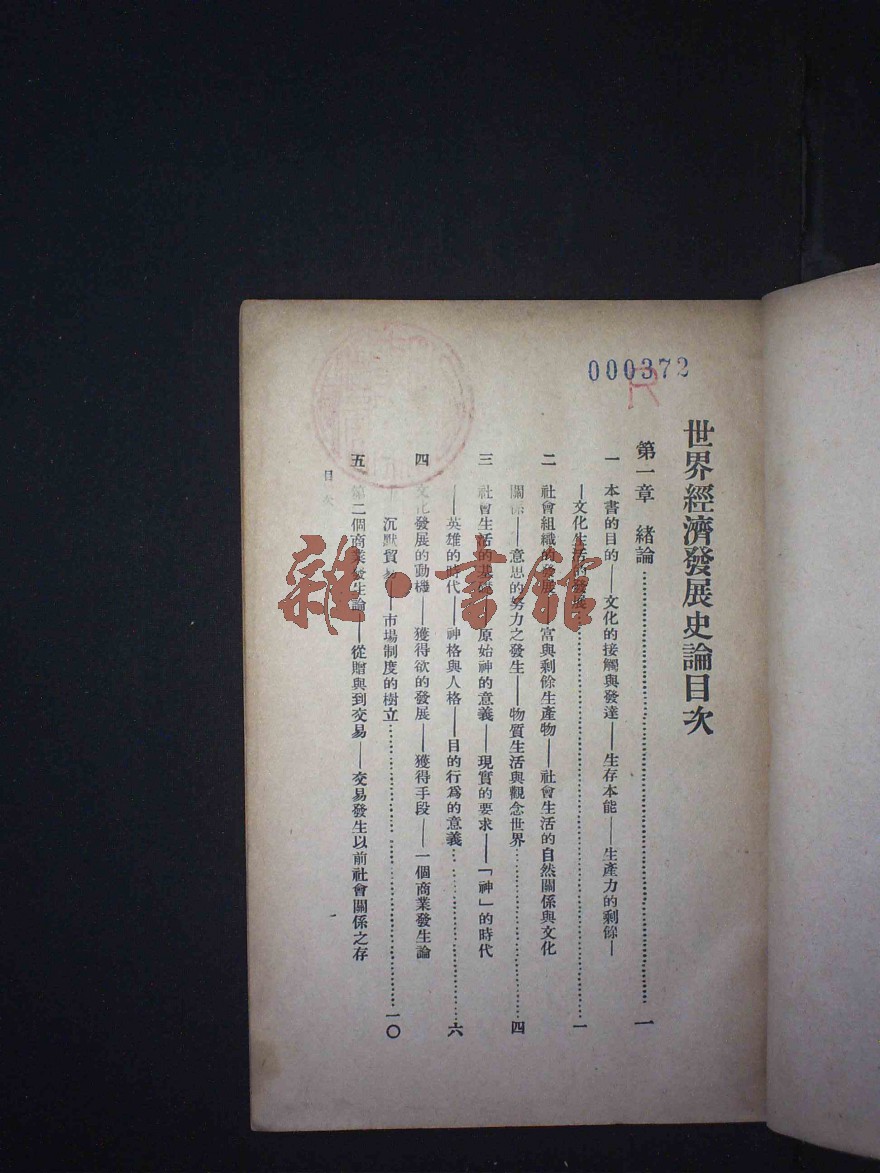 000372
R
世界經濟發展史論目次
第一章 緒論……一
一 本書的目的——文化的接觸與發達——生存本能——生產力的剩餘—
—文化生活的發展……一
二 社會組織的發展——富與剩餘生產物——社會生活的自然關係與文化
關係——意思的努力之發生——物質生活與觀念世界……四
三 社會生活的基礎——原始神的意義——現實的要求——「神」的時代
——英雄的時代——神格與人格——目的行爲的意義……六
四 文化發展的動機——獲得欲的發展——獲得手段——一個商業發生論
沉默貿易——市場制度的樹立……一〇
五 第二個商業發生論——從贈與到交易——交易發生以前社會關係之存
目次
一
雜·書館